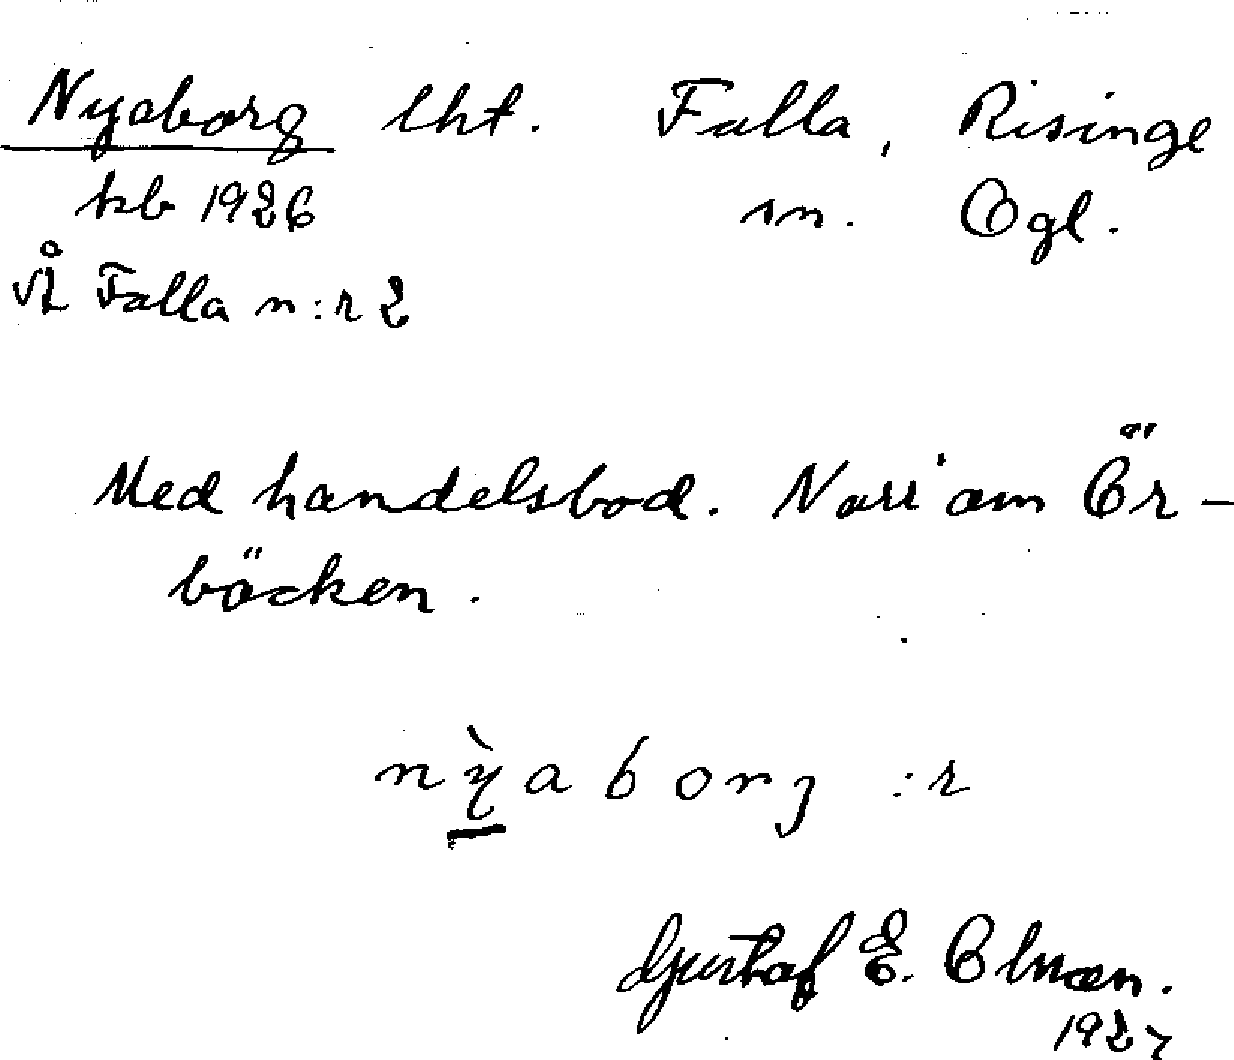 Nyaborg lht. Falla, Risinge
kb 1926 sn. Ögl.
på Falla n:r 2
Med handelsbod. Norr om Ör-
bäcken.
nỳaborg :r
Gustaf E. Olman.
1927